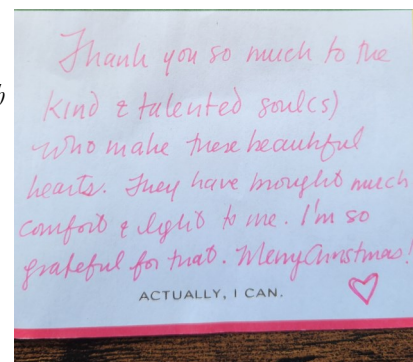 Thank you so much to the
kind & talented soul(s)
who make these beautiful
hearts. They have brought much
comfort & light to me. I'm so
grateful for that. Merry Christmas!
ACTUALLY, I CAN.